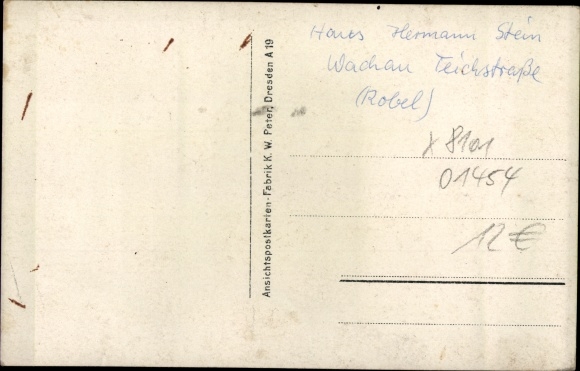 Hans Hermann Stein
Wachau Teichstraße
(Robel)
x 8101
01454
12 €
Ansichtspostkarten-Fabrik K. W. Peter, Dresden A 19